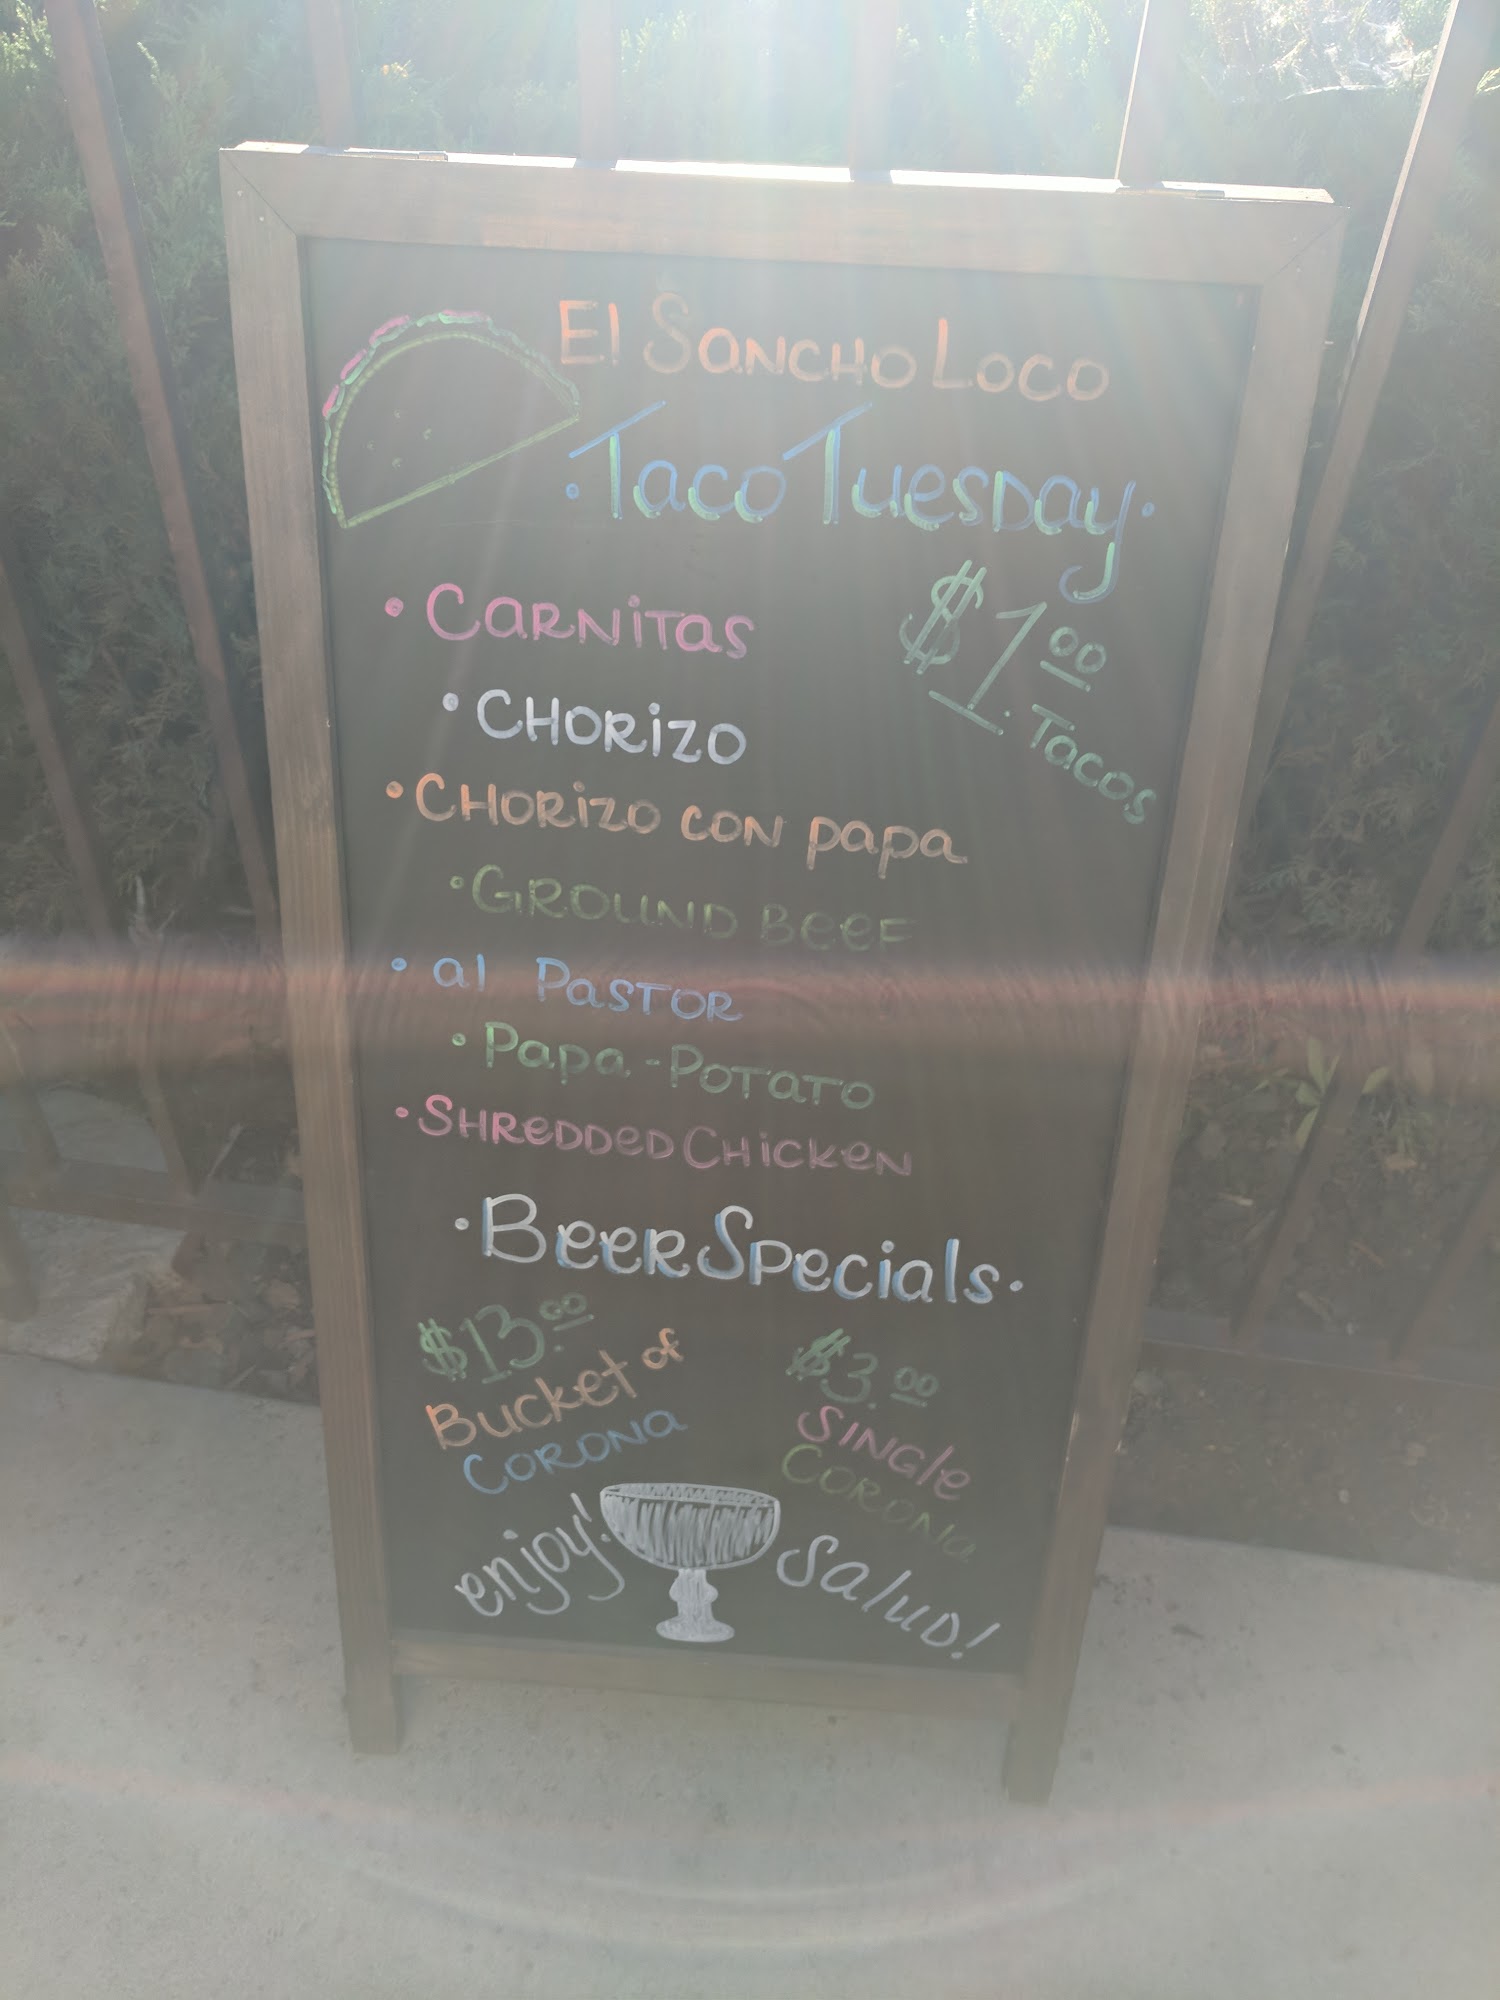 El Sancho Loco
· Taco Tuesday ·
$1.00 Tacos
• Carnitas
• Chorizo
• Chorizo con papa
• Ground Beef
• al Pastor
• Papa - Potato
• Shredded Chicken
· Beer Specials ·
$13.00
Bucket of
Corona
$3.00
Single
Corona
enjoy!
Salud!